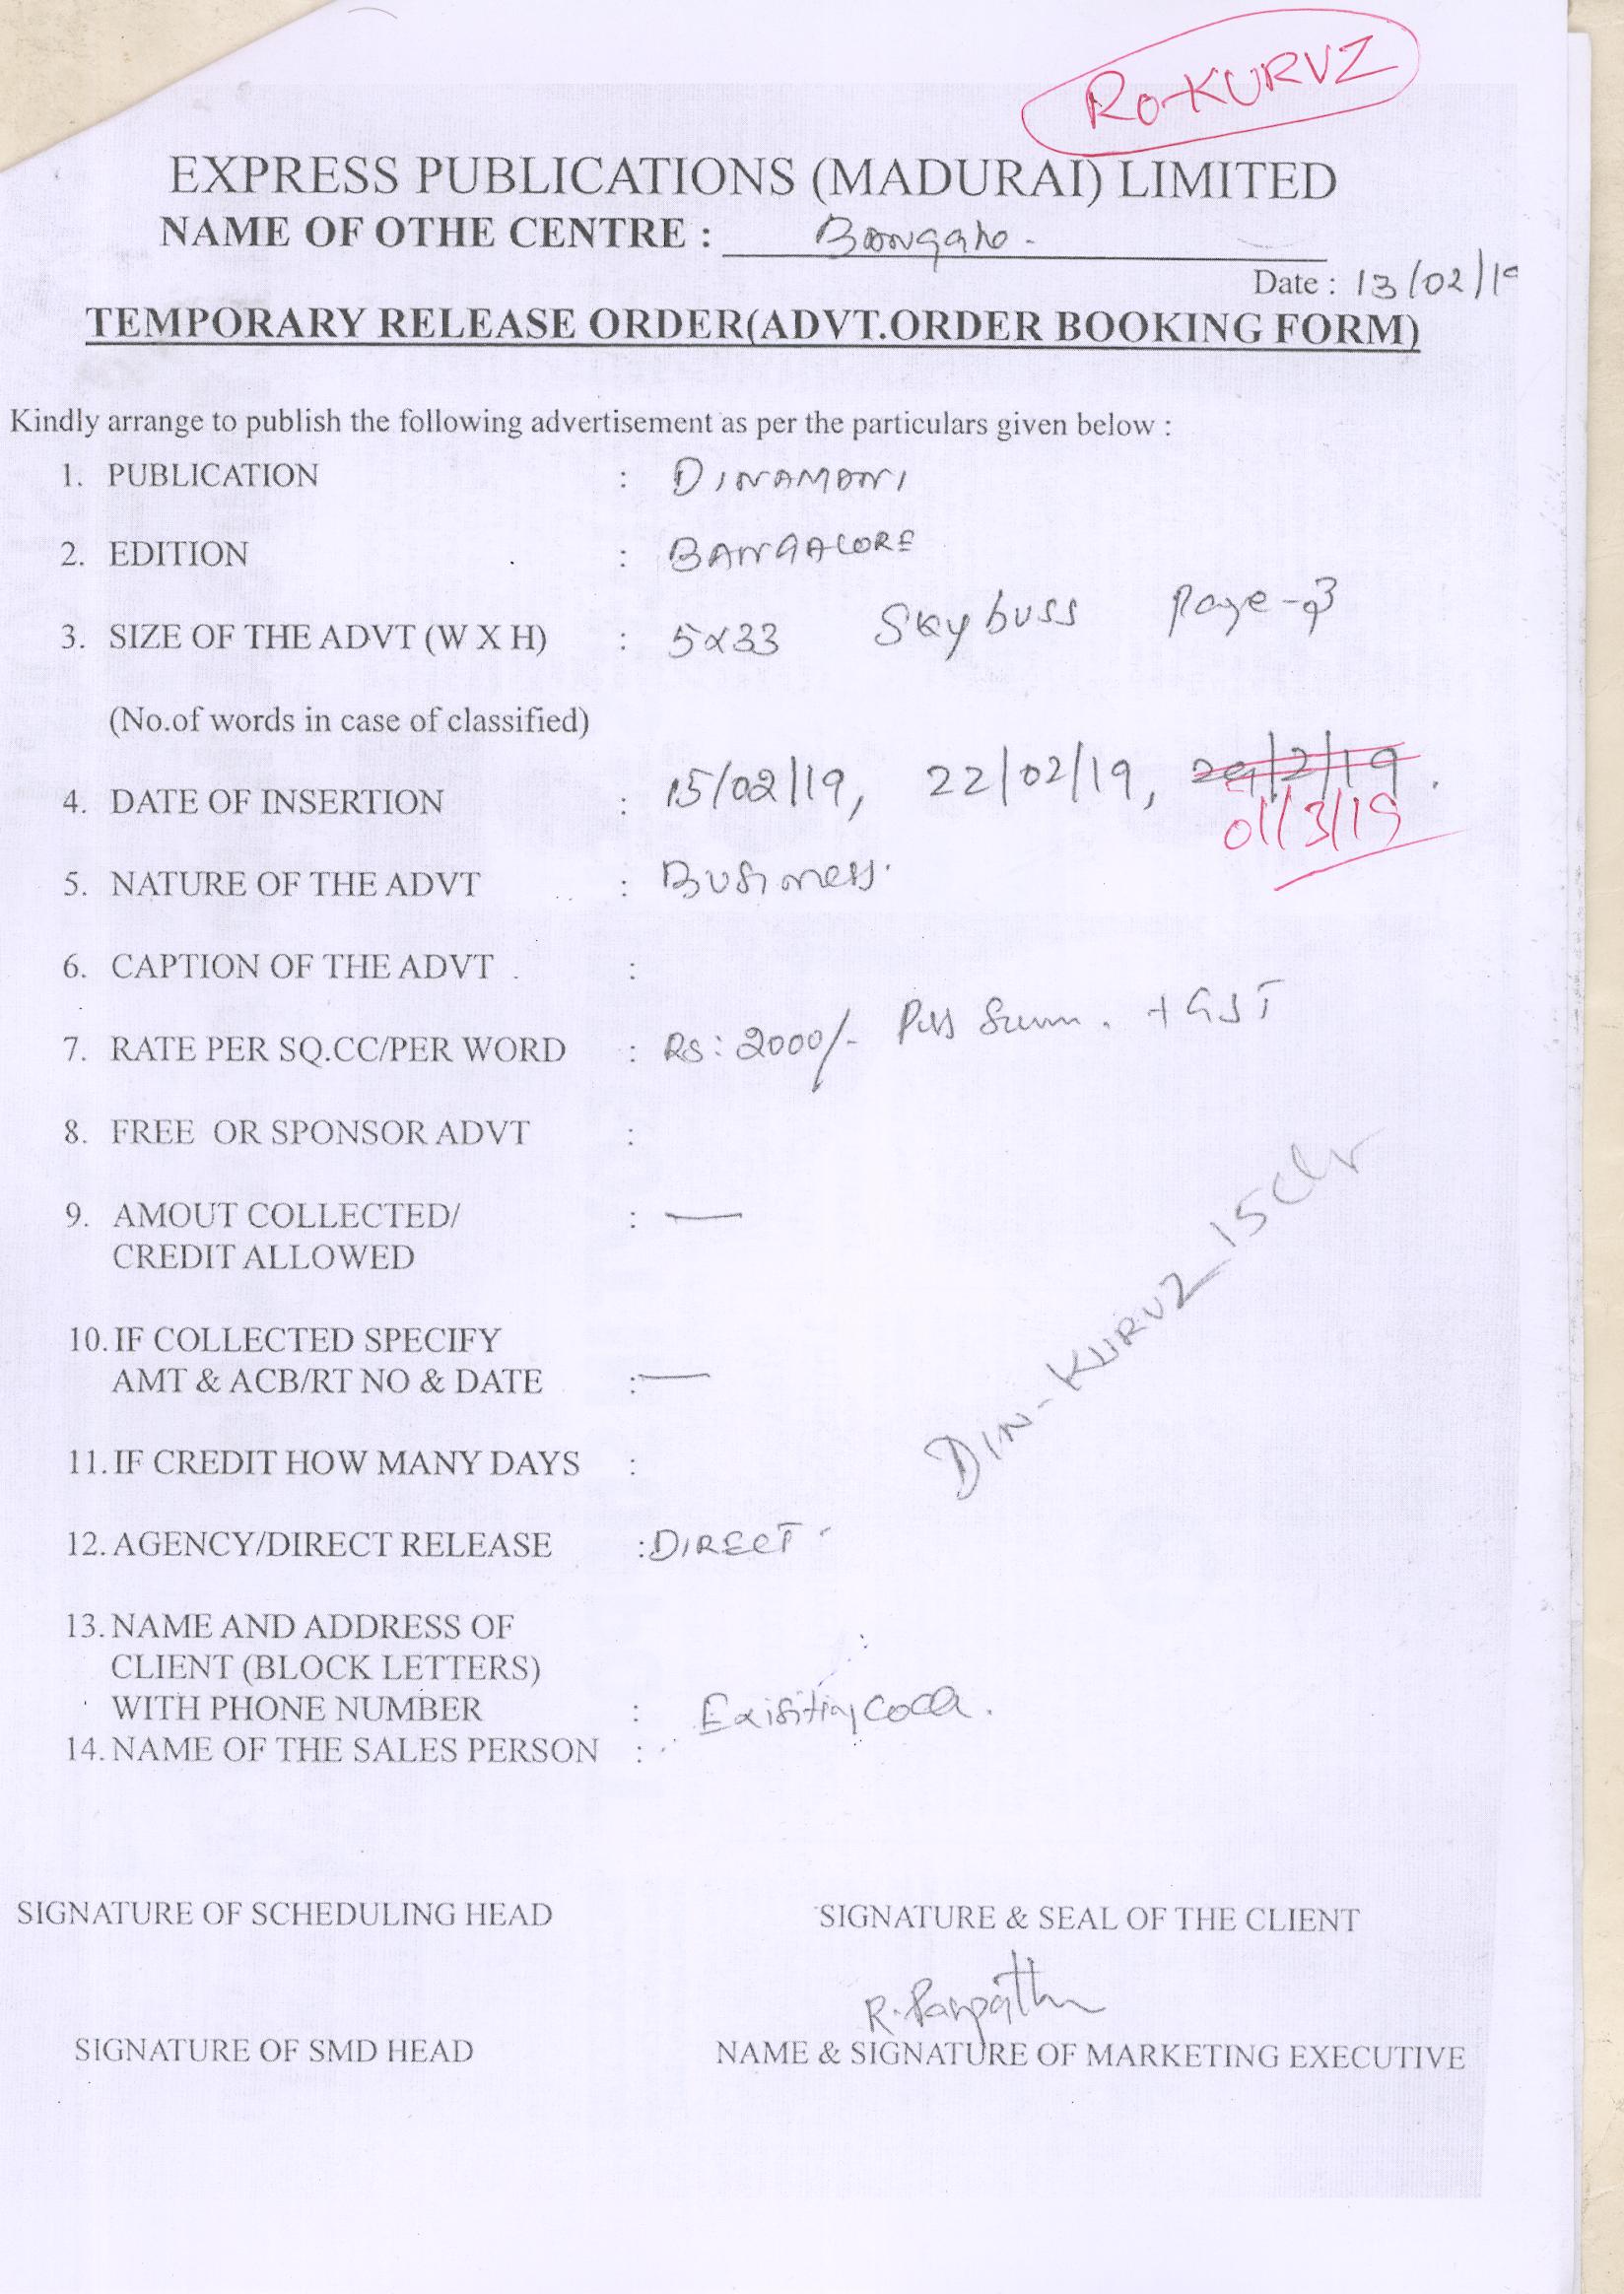 RO-KURVZ
EXPRESS PUBLICATIONS (MADURAI) LIMITED
NAME OF OTHE CENTRE :
Date : 13/02/19
TEMPORARY RELEASE ORDER(ADVT.ORDER BOOKING FORM)
Kindly arrange to publish the following advertisement as per the particulars given below :
1. PUBLICATION : DINAMANI
2. EDITION : BANGALORE
3. SIZE OF THE ADVT (W X H) : 5x33 Skybuss Page-3
(No.of words in case of classified)
4. DATE OF INSERTION : 15/02/19, 22/02/19, 29/2/19.
01/3/19
5. NATURE OF THE ADVT : Business.
6. CAPTION OF THE ADVT :
7. RATE PER SQ.CC/PER WORD : RS: 2000/- + GST
8. FREE OR SPONSOR ADVT :
9. AMOUT COLLECTED/ : —
CREDIT ALLOWED
10. IF COLLECTED SPECIFY
AMT & ACB/RT NO & DATE : —
11. IF CREDIT HOW MANY DAYS :
DIN-KURVZ_15Clr
12. AGENCY/DIRECT RELEASE : DIRECT.
13. NAME AND ADDRESS OF
CLIENT (BLOCK LETTERS)
WITH PHONE NUMBER :
14. NAME OF THE SALES PERSON :
SIGNATURE OF SCHEDULING HEAD SIGNATURE & SEAL OF THE CLIENT
SIGNATURE OF SMD HEAD NAME & SIGNATURE OF MARKETING EXECUTIVE